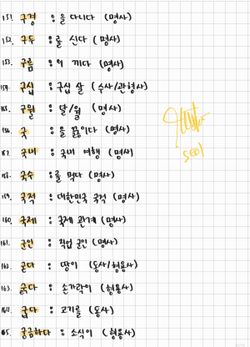 151. 구경 : 을 다니다 (명사)
152. 구두 : 를 신다 (명사)
153. 구름 : 이 끼다 (명사)
154. 구십 : 구십 살 (수사/관형사)
155. 구월 : 달/월 (명사)
156. 국 : 을 끓이다 (명사)
157. 국내 : 국내 여행 (명사)
158. 국수 : 를 먹다 (명사)
159. 국적 : 대한민국 국적 (명사)
160. 국제 : 국제 관계 (명사)
161. 군인 : 직업 군인 (명사)
162. 굳다 : 땅이 (동사/형용사)
163. 굵다 : 손가락이 (형용사)
164. 굽다 : 고기를 (동사)
165. 궁금하다 : 소식이 (형용사)